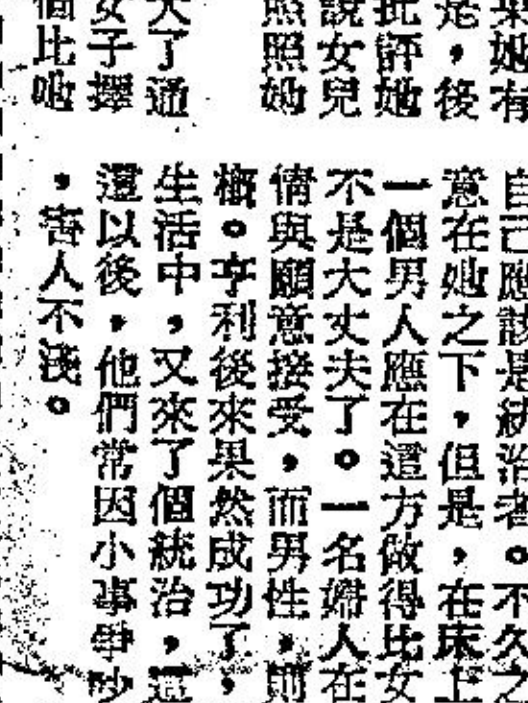 果她有
是，後
批評她
說女兒
照照她
大了通
女子擇
個比她
自己應該是統治者。不久之
意在她之下，但是，在床上
一個男人應在這方做得比女
不是大丈夫了。一名婦人在
情與願意接受，而男性，則
概。亨利後來果然成功了，
生活中，又來了個統治，這
還以後，他們常因小事爭吵
，害人不淺。